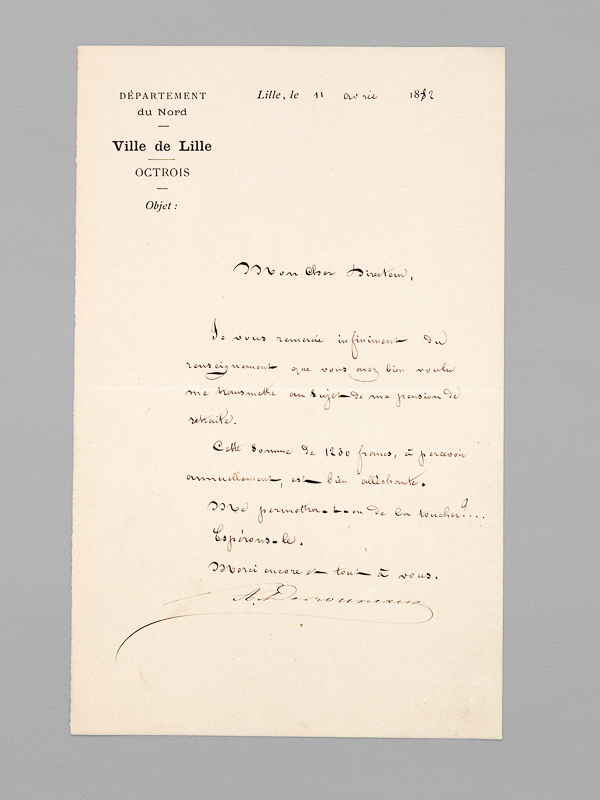 DÉPARTEMENT
du Nord
Ville de Lille
OCTROIS
Objet :
Lille, le 11 avril 1882
Mon Cher Directeur,
Je vous remercie infiniment du
renseignement que vous avez bien voulu
me transmettre au sujet de ma pension de
retraite.
Cette somme de 1230 francs, à percevoir
annuellement, est bien alléchante.
Me permettra-t-on de la toucher?...
Espérons-le.
Merci encore et tout à vous.